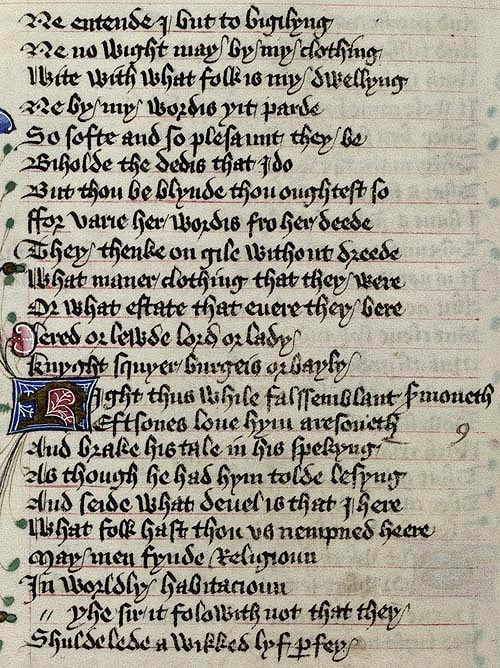 Ne entende I but to bigilyng
Ne no wight may by my clothing
Wite with what folk is my dwellyng
Ne by my wordis yit parde
So softe and so plesaunt they be
Biholde the dedis that I do
But thou be blynde thou oughtest so
ffor varie her wordis fro her deede
They thenke on gile without dreede
What maner clothing that they were
Or what estate that euere they bere
Lered or lewde lord or lady
Knyght squyer burgeis or bayly
Right thus while falssemblant sermoneth
Eftsones loue hym aresoneth
And brake his tale in his spekyng
As though he had hym tolde lesyng
And seide what deuel is that I here
What folk hast thou vs nempned heere
May men fynde Religioun
In worldly habitacioun
〃 yhe sir it folowith not that they
Shulde lede a wikked lyf ꝑfey